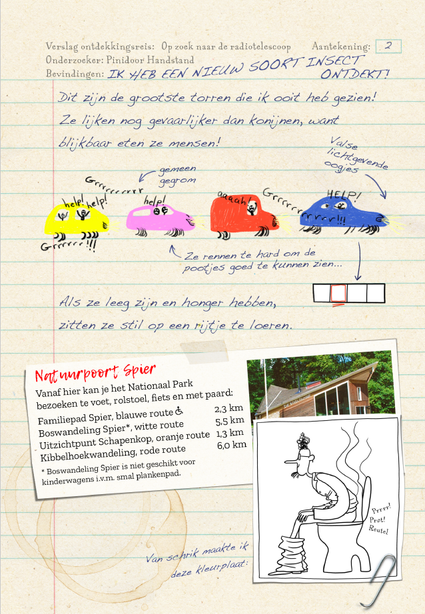 Verslag ontdekkingsreis: Op zoek naar de radiotelescoop Aantekening: 2
Onderzoeker: Pinidoor Handstand
Bevindingen: IK HEB EEN NIEUW SOORT INSECT
ONTDEKT!
Dit zijn de grootste torren die ik ooit heb gezien!
Ze lijken nog gevaarlijker dan konijnen, want
blijkbaar eten ze mensen!
Valse
lichtgevende
oogjes
gemeen
gegrom
Grrrrrrrrr
help! help!
help!
aaaah!
Grrrrrrrrrrrr!!!
HELP!
Grrrrr!!!
Ze rennen te hard om de
pootjes goed te kunnen zien...
Als ze leeg zijn en honger hebben,
zitten ze stil op een rijtje te loeren.
Natuurpoort Spier
Vanaf hier kan je het Nationaal Park
bezoeken te voet, rolstoel, fiets en met paard:
Familiepad Spier, blauwe route ♿ 2,3 km
Boswandeling Spier*, witte route 5,5 km
Uitzichtpunt Schapenkop, oranje route 1,3 km
Kibbelhoekwandeling, rode route 6,0 km
* Boswandeling Spier is niet geschikt voor
kinderwagens i.v.m. smal plankenpad.
Prrrr!
Prot!
Reutel
Van schrik maakte ik
deze kleurplaat: